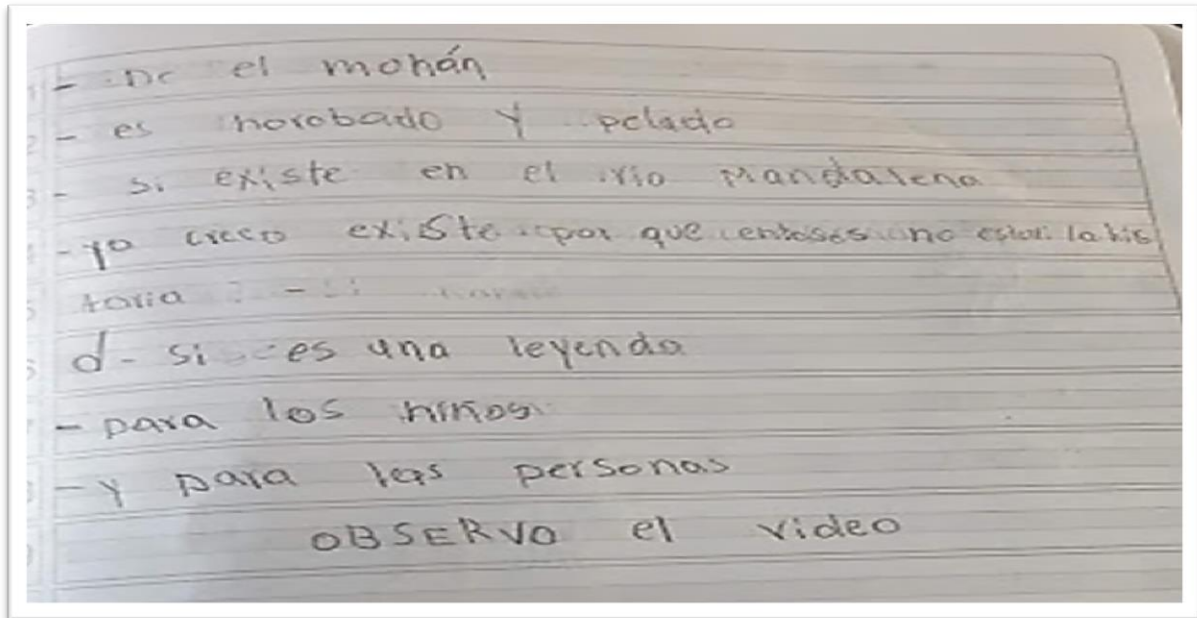 - De el mohán
- es horobado y pelado
- si existe en el rio Mandalena
- yo creeo existe por que entoses no estari la his
toria
d- si es una leyenda
- para los niños
- y para las personas
OBSERVO el video